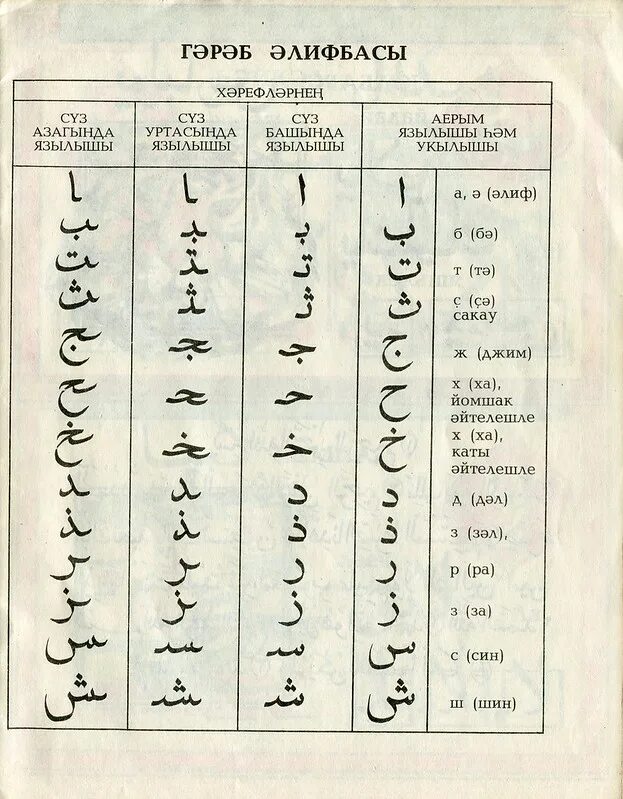 ГӘРӘБ ӘЛИФБАСЫ
ХӘРЕФЛӘРНЕҢ
СҮЗ АЗАГЫНДА ЯЗЫЛЫШЫ
СҮЗ УРТАСЫНДА ЯЗЫЛЫШЫ
СҮЗ БАШЫНДА ЯЗЫЛЫШЫ
АЕРЫМ ЯЗЫЛЫШЫ ҺӘМ УКЫЛЫШЫ
ـا ـا ا ا а, ә (әлиф)
ـب ـبـ بـ ب б (бә)
ـت ـتـ تـ ت т (тә)
ـث ـثـ ثـ ث ҫ (ҫә) сакау
ـج ـجـ جـ ج ж (джим)
ـح ـحـ حـ ح х (ха), йомшак әйтелешле
ـخ ـخـ خـ خ х (ха), каты әйтелешле
ـد ـد د د д (дәл)
ـذ ـذ ذ ذ з (зәл),
ـر ـر ر ر р (ра)
ـز ـز ز ز з (за)
ـس ـسـ سـ س с (син)
ـش ـشـ شـ ش ш (шин)